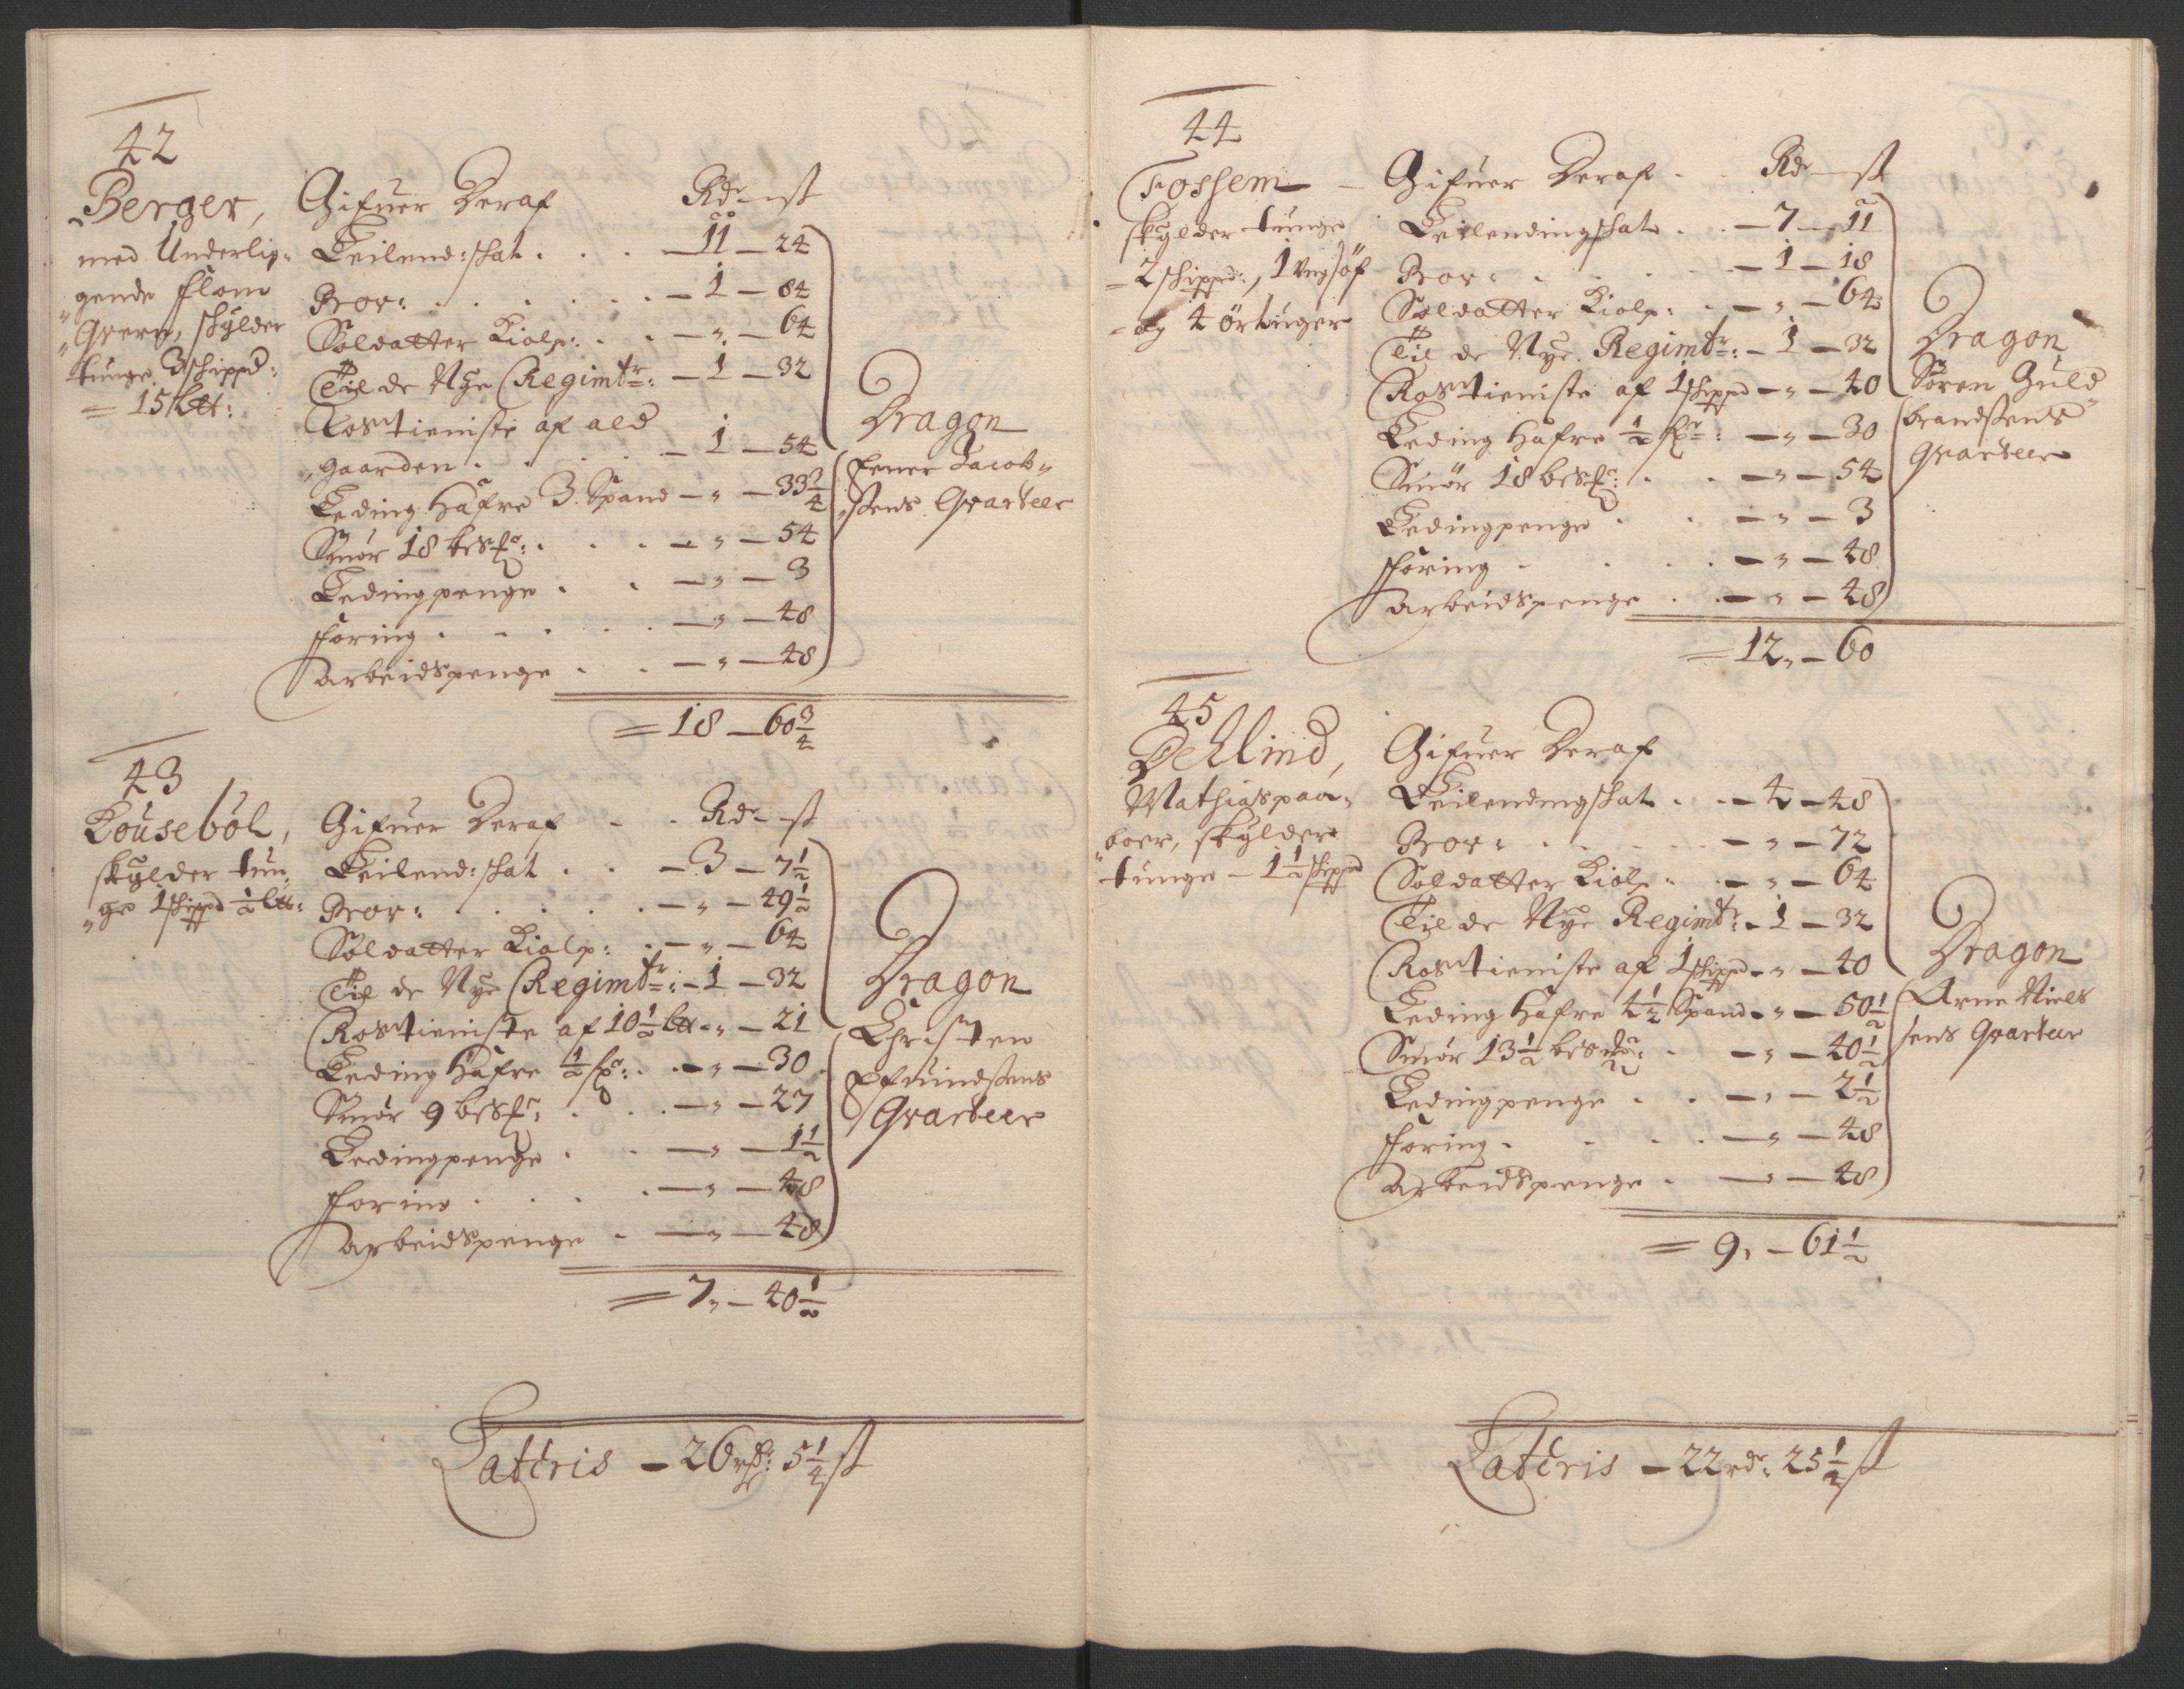 42
Berger,
med Underlig-
gende flom
Qvern, skylder
tunge 3 schippd:
= 15 Ltt:
Gifuer Deraf Rdr — st
Leilend: skat . . . — 11 — 24
Bor: . . . . . — 1 — 84
Soldatter Kiolp: . . — " — 64
Til de Nye Regimtr: — 1 — 32
Rostieniste af ald
gaarden . . . . . — 1 — 54
Leding Hafre 3 Spand — " — 33 3/4
Smör 18 besr: . . . — " — 54
Ledingpenge . . — " — 3
fforing . . . . . — " — 48
arbeidspenge . . — " — 48
Dragon
Jacob-
sens Qvarteer
= 18 — 60 3/4
43
Kouseböl,
skylder tun-
ge 1 schippd 1/2 Ltt:
Gifuer Deraf - . Rdr — st
Leilend: skat . . — 3 — 7 1/2
Bor: . . . . . — " — 49 1/2
Soldatter Kiolp: . — " — 64
Til de Nye Regimtr: — 1 — 32
Rostieniste af 10 1/2 Ltt — " — 21
Leding Hafre 1/2 hr: . — " — 30
Smör 9 besr: . . . — " — 27
Ledingpenge . . — " — 1 1/2
fforing . . . . — " — 48
arbeidspenge . — " — 48
Dragon
Christen
Qvarteer
= 7 " — 40 1/2
Lateris — 26 rdr: 5 1/4 st
44
Fossem —
skylder tunge
= 2 schippd:, 1
= og 4 örtuger
Gifuer Deraf . . Rdr — st
Leilendingskat . . — 7 — 11
Bor: . . . . . — 1 — 18
Soldatter Kiolp: . — " — 64
Til de Nye Regimtr: — 1 — 32
Rostieniste af 1 schippd — " — 40
Leding Hafre 1/2 hr: — " — 30
Smör 18 besr: . . — " — 54
Ledingpenge . . — " — 3
fforing . . . . — " — 48
arbeidspenge . . — " — 48
Dragon
Sören Guld-
brandsens
Qvarteer
= 12 " — 60
45
Dehlind,
Mathias paa-
boer, skylder
tunge — 1 1/2 schippd
Gifuer Deraf
Leilendingskat . . — 4 — 48
Bor: . . . . . — " — 72
Soldatter Kiolp: . — " — 64
Til de Nye Regimtr: — 1 — 32
Rostieniste af 1 schippd — " — 40
Leding Hafre 4 1/2 Spand — " — 50 1/2
Smör 13 1/2 besmr: . — " — 40 1/2
Ledingpenge . . — " — 2 1/2
fforing . . . . — " — 48
arbeidspenge . — " — 48
Dragon
Arne Niels
sens Qvarteer
= 9 " — 61 1/2
Lateris — 22 rdr: 25 1/2 st